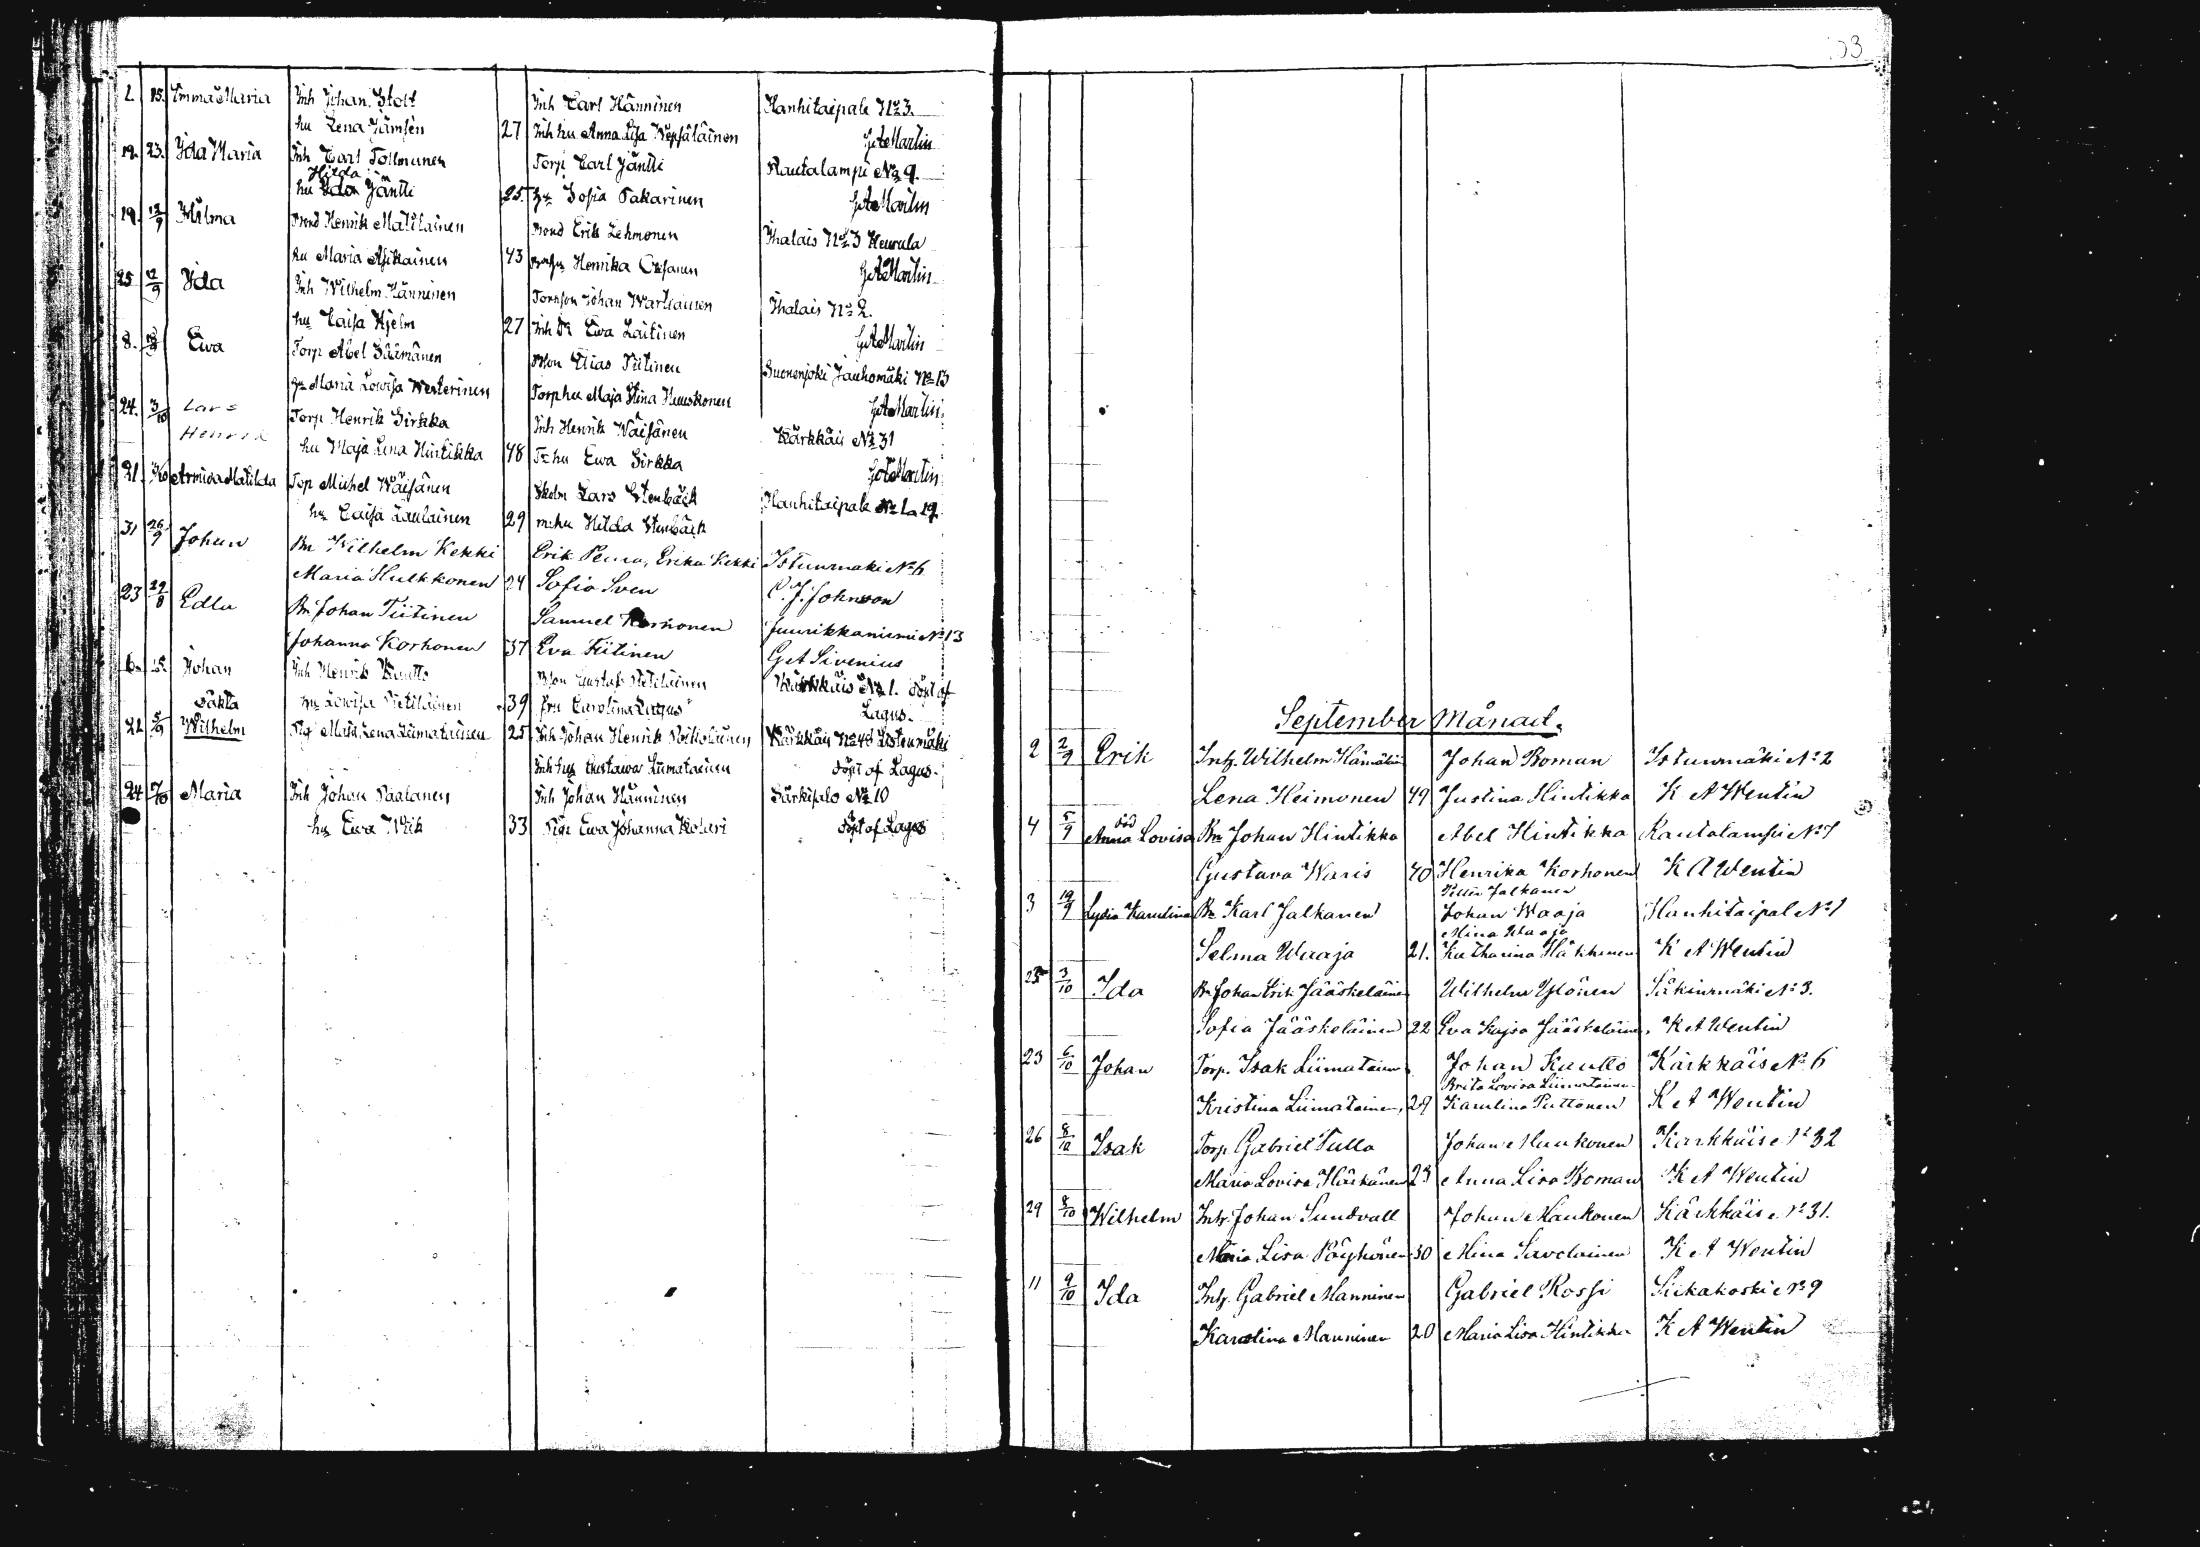 2. 15. Emma Maria Inh Johan Stolt Inh Carl Hänninen Hanhitaipale No 3.
hu Lena Jämsén 27 Inh hu Anna Lisa Wepsäläinen G A Martin
19. 23. Ida Maria Inh Carl Tollmunen Torp Carl Jäntti Rautalampi No 9.
Hilda
hu Ida Jäntti 25. hu Sofia Pakarinen G A Martin
19. 12/9 Hilma Bond Henrik Matilainen Bond Erik Lehmonen Ihalais No 3 Heurula
hu Maria Asikainen 43 Henrika Oksanen G A Martin
25 12/9 Ida Inh Wilhelm Hänninen Johan Wartiainen Ihalais No 2.
hu Caisa Hjelm 27 Inh Ewa Laitinen G A Martin
8. Ewa Torp Abel Säämänen Elias Tiitinen Suonenjoki Jauhomäki No 13
hu Maria Lowisa Westerinen Torp hu Maja Stina Huuskonen G A Martin
24. 3/10 Lars Henrik Torp Henrik Sirkka Inh Henrik Wäisänen Kärkkäis No 31
hu Maja Lena Hintikka 48 hu Ewa Sirkka G A Martin
21. Armida Matilda Torp Michel Wäisänen Lars Stenbäck Hanhitaipale No 1 a 19
hu Caisa Laulainen 29 hu Hilda Stenbäck
31 26/9 Johan Bn Wilhelm Kekki Erik Penna, Erika Kekki Istunmäki No 6
Maria Hulkkonen 24 Sofia Sven C. J. Johnson
23 29/8 Edla Bn Johan Tiitinen Samuel Korhonen Juurikkaniemi No 13
Johanna Korhonen 37 Eva Tiitinen G A Sivenius
6. 15. Johan Inh Henrik Kautto Gustaf Pietiläinen Kärkkäis No 1. döpt af
oäkta hu Lowisa Pietiläinen 39 fru Carolina Lagus Lagus.
22 5/9 Wilhelm Pig Maja Lena Liimatainen 25 Inh Johan Henrik Poikolainen Kärkkäis No 40 Listonmäki
Inh hu Gustawa Liimatainen döpt af Lagus.
24 7/10 Maria Inh Johan Paalanen Inh Johan Hänninen Särkisalo No 10
hu Ewa Wik 33 Pigan Ewa Johanna Kolari döpt af Lagus
53
September Månad.
2 2/9 Erik Inh. Wilhelm Hämäläin Johan Boman Istunmäki No 2
Lena Heimonen 49 Justina Hintikka K A Wentin
4 5/9 död Anna Lovisa Bn Johan Hintikka Abel Hintikka Rautalampi No 7
Gustava Waris 40 Henrika Korhonen K A Wentin
Petter Jalkanen
3 19/9 Lydia Karolina Bn Karl Jalkanen Johan Waaja Hanhitaipal No 1
Mina Waaja
Selma Waaja 21. Katharina Häkkinen K A Wentin
25 3/10 Ida Bn Johan Erik Jääskeläinen Wilhelm Ylönen Säkinmäki No 3.
Sofia Jääskeläinen 22 Eva Kajsa Jääskeläinen, K A Wentin
23 6/10 Johan Torp. Isak Liimatainen Johan Kautto Kärkkäis No 6
Brita Lovisa Liimatainen
Kristina Liimatainen, 29 Karolina Puttonen K A Wentin
26 8/10 Isak Torp. Gabriel Tulla Johan Muukonen Kärkkäis No 32
Maria Lovisa Härkänen 23 Anna Lisa Boman K A Wentin
29 8/10 Wilhelm Inh. Johan Sundvall Johan Maukonen Kärkkäis No 31.
Maria Lisa Pöyhönen 30 Mina Savolainen K A Wentin
11 9/10 Ida Inh. Gabriel Manninen Gabriel Rossi Siikakoski No 9
Karolina Manninen 20 Maria Lisa Hintikka K A Wentin